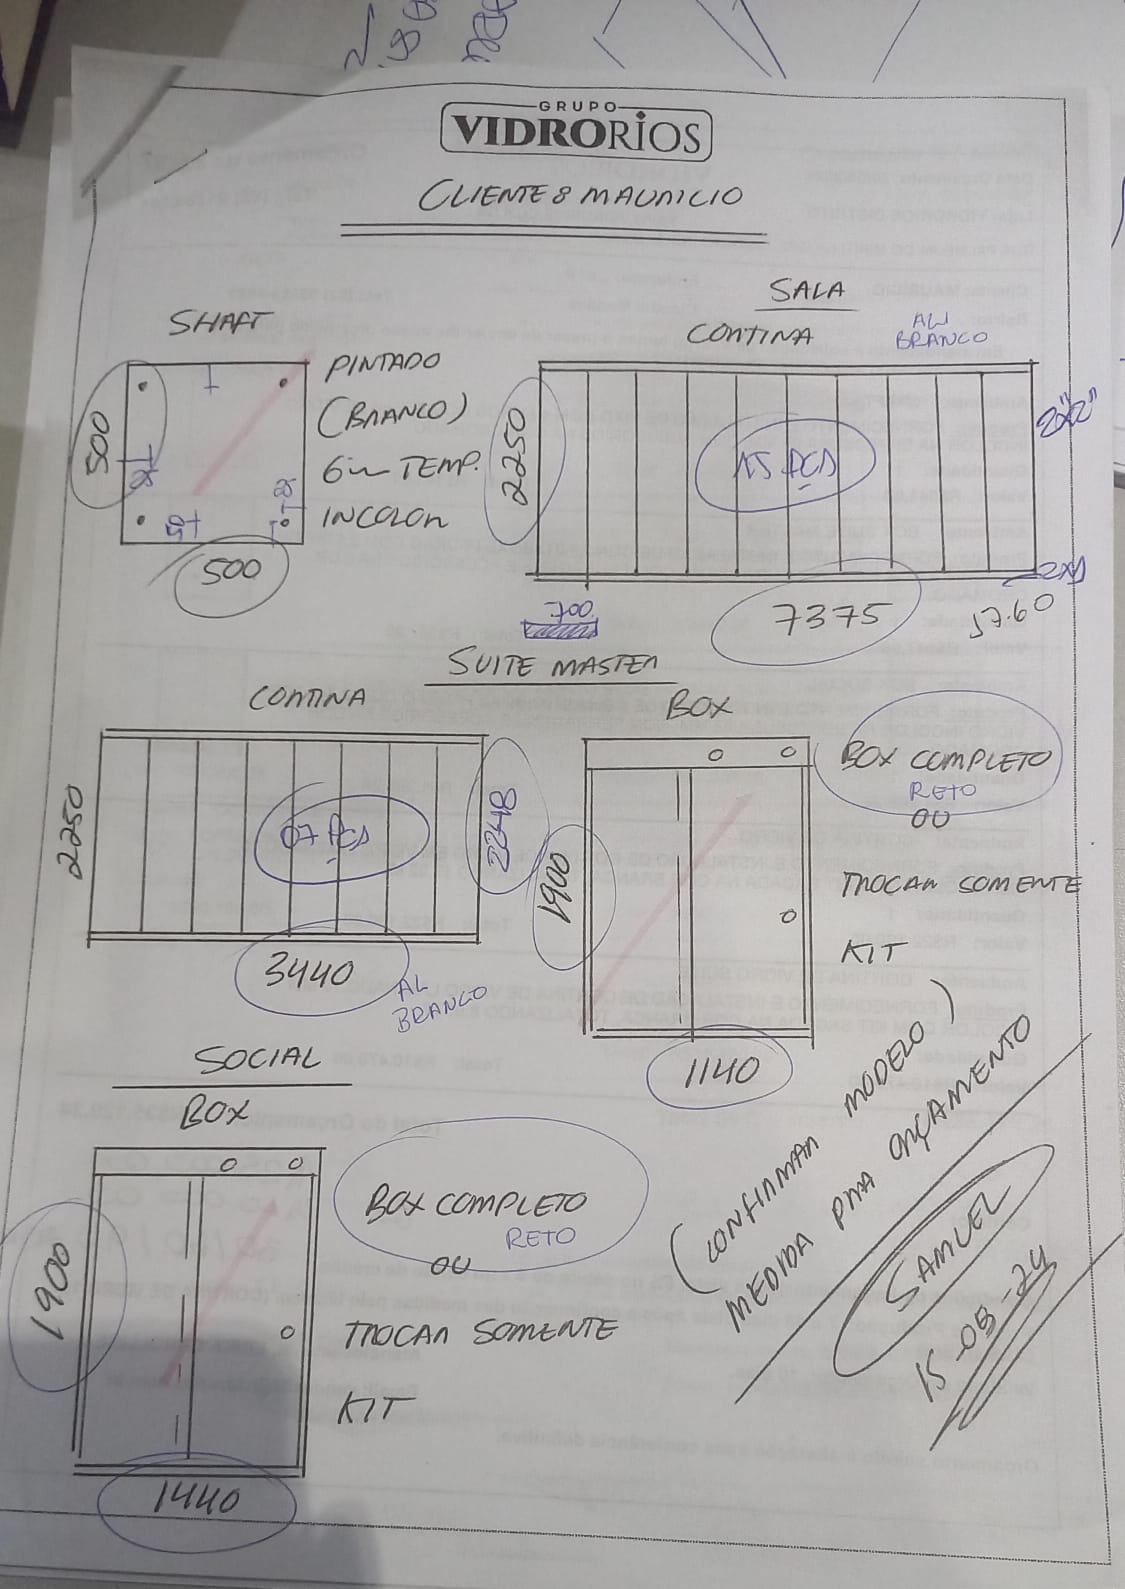 GRUPO
VIDRORIOS
CLIENTE: MAURICIO
SALA
SHAFT
CORTINA
AL
BRANCO
PINTADO
(BRANCO)
6m TEMP.
INCOLOR
500
50
500
2250
15 PÇS
7375
57.60
700
SUITE MASTER
CORTINA
BOX
2250
07 PÇS
2248
3440
AL
BRANCO
1900
1140
BOX COMPLETO
RETO
OU
TROCAR SOMENTE
KIT
SOCIAL
BOX
1900
1440
BOX COMPLETO
RETO
OU
TROCAR SOMENTE
KIT
(CONFIRMAR MODELO)
MEDIDA PRA ORÇAMENTO
SAMUEL
15-08-24